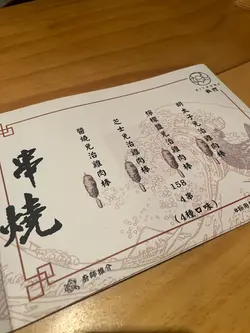 串燒
明太子免治雞肉棒
檸檬鹽免治雞肉棒
芝士免治雞肉棒
醬燒免治雞肉棒
158
4串
(4種口味)
廚師推介